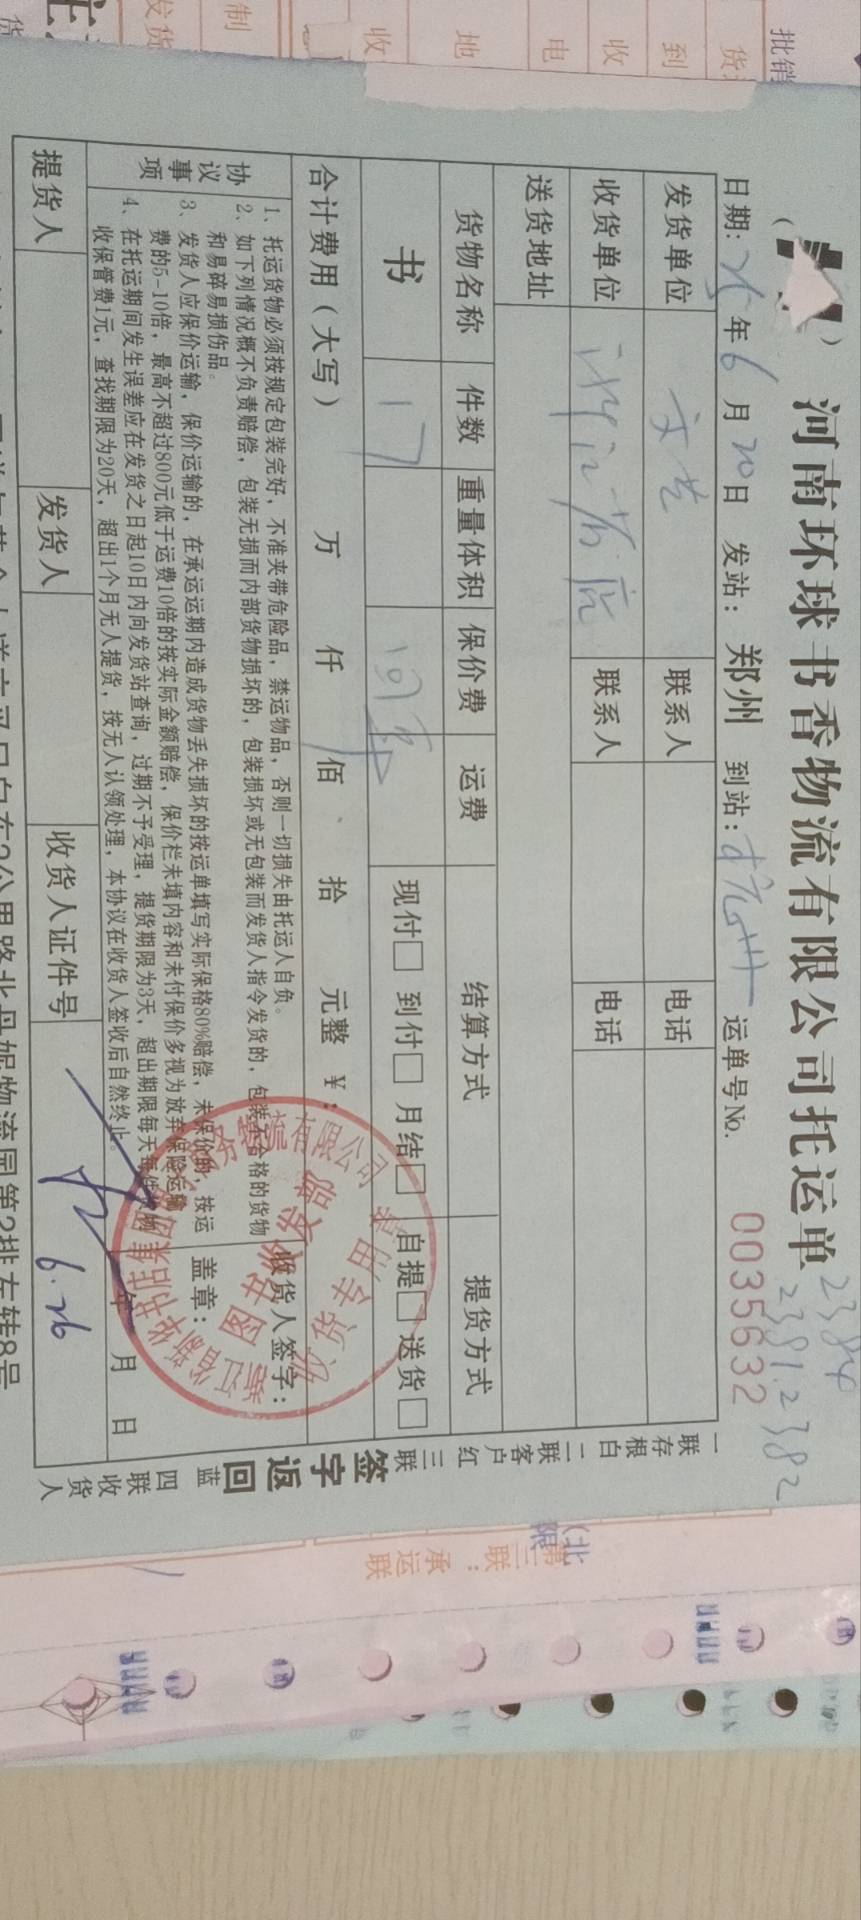 河南环球书香物流有限公司托运单
2384
2381.2382
日期: 25年6月20日 发站: 郑州 到站: 杭州 运单号No. 0035632
发货单位 文艺 联系人 电话
收货单位 浙江省店 联系人 电话
送货地址
货物名称 件数 重量体积 保价费 运费 结算方式 提货方式
书 17 回单 现付□ 到付□ 月结□ 自提□ 送货□
合计费用（大写） 万 仟 佰 拾 元整 ￥:
协议事项
1、托运货物必须按规定包装完好，不准夹带危险品，禁运物品，否则一切损失由托运人自负。
2、如下列情况概不负责赔偿，包装无损而内部货物损坏的，包装损坏或无包装而发货人指令发货的，包装不合格的货物
和易碎易损伤品。
3、发货人应保价运输，保价运输的，在承运运期内造成货物丢失损坏的按运单填写实际保格80%赔偿，未保价的，按运
费的5-10倍，最高不超过800元低于运费10倍的按实际金额赔偿，保价栏未填内容和未付保价多视为放弃保险运输
4、在托运期间发生误差应在发货之日起10日内向发货站查询，过期不予受理，提货期限为3天，超出期限每天每件货物
收保管费1元，查找期限为20天，超出1个月无人提货，按无人认领处理，本协议在收货人签收后自然终止。
收货人签字:
盖章:
年 月 日
提货人 发货人 收货人证件号
6.26
一联存根白 二联客户红 三联
签字返回
蓝 四联收货人
浙江省新华书店集团
图书物务部
收货专用章
第三联：承运联
批销